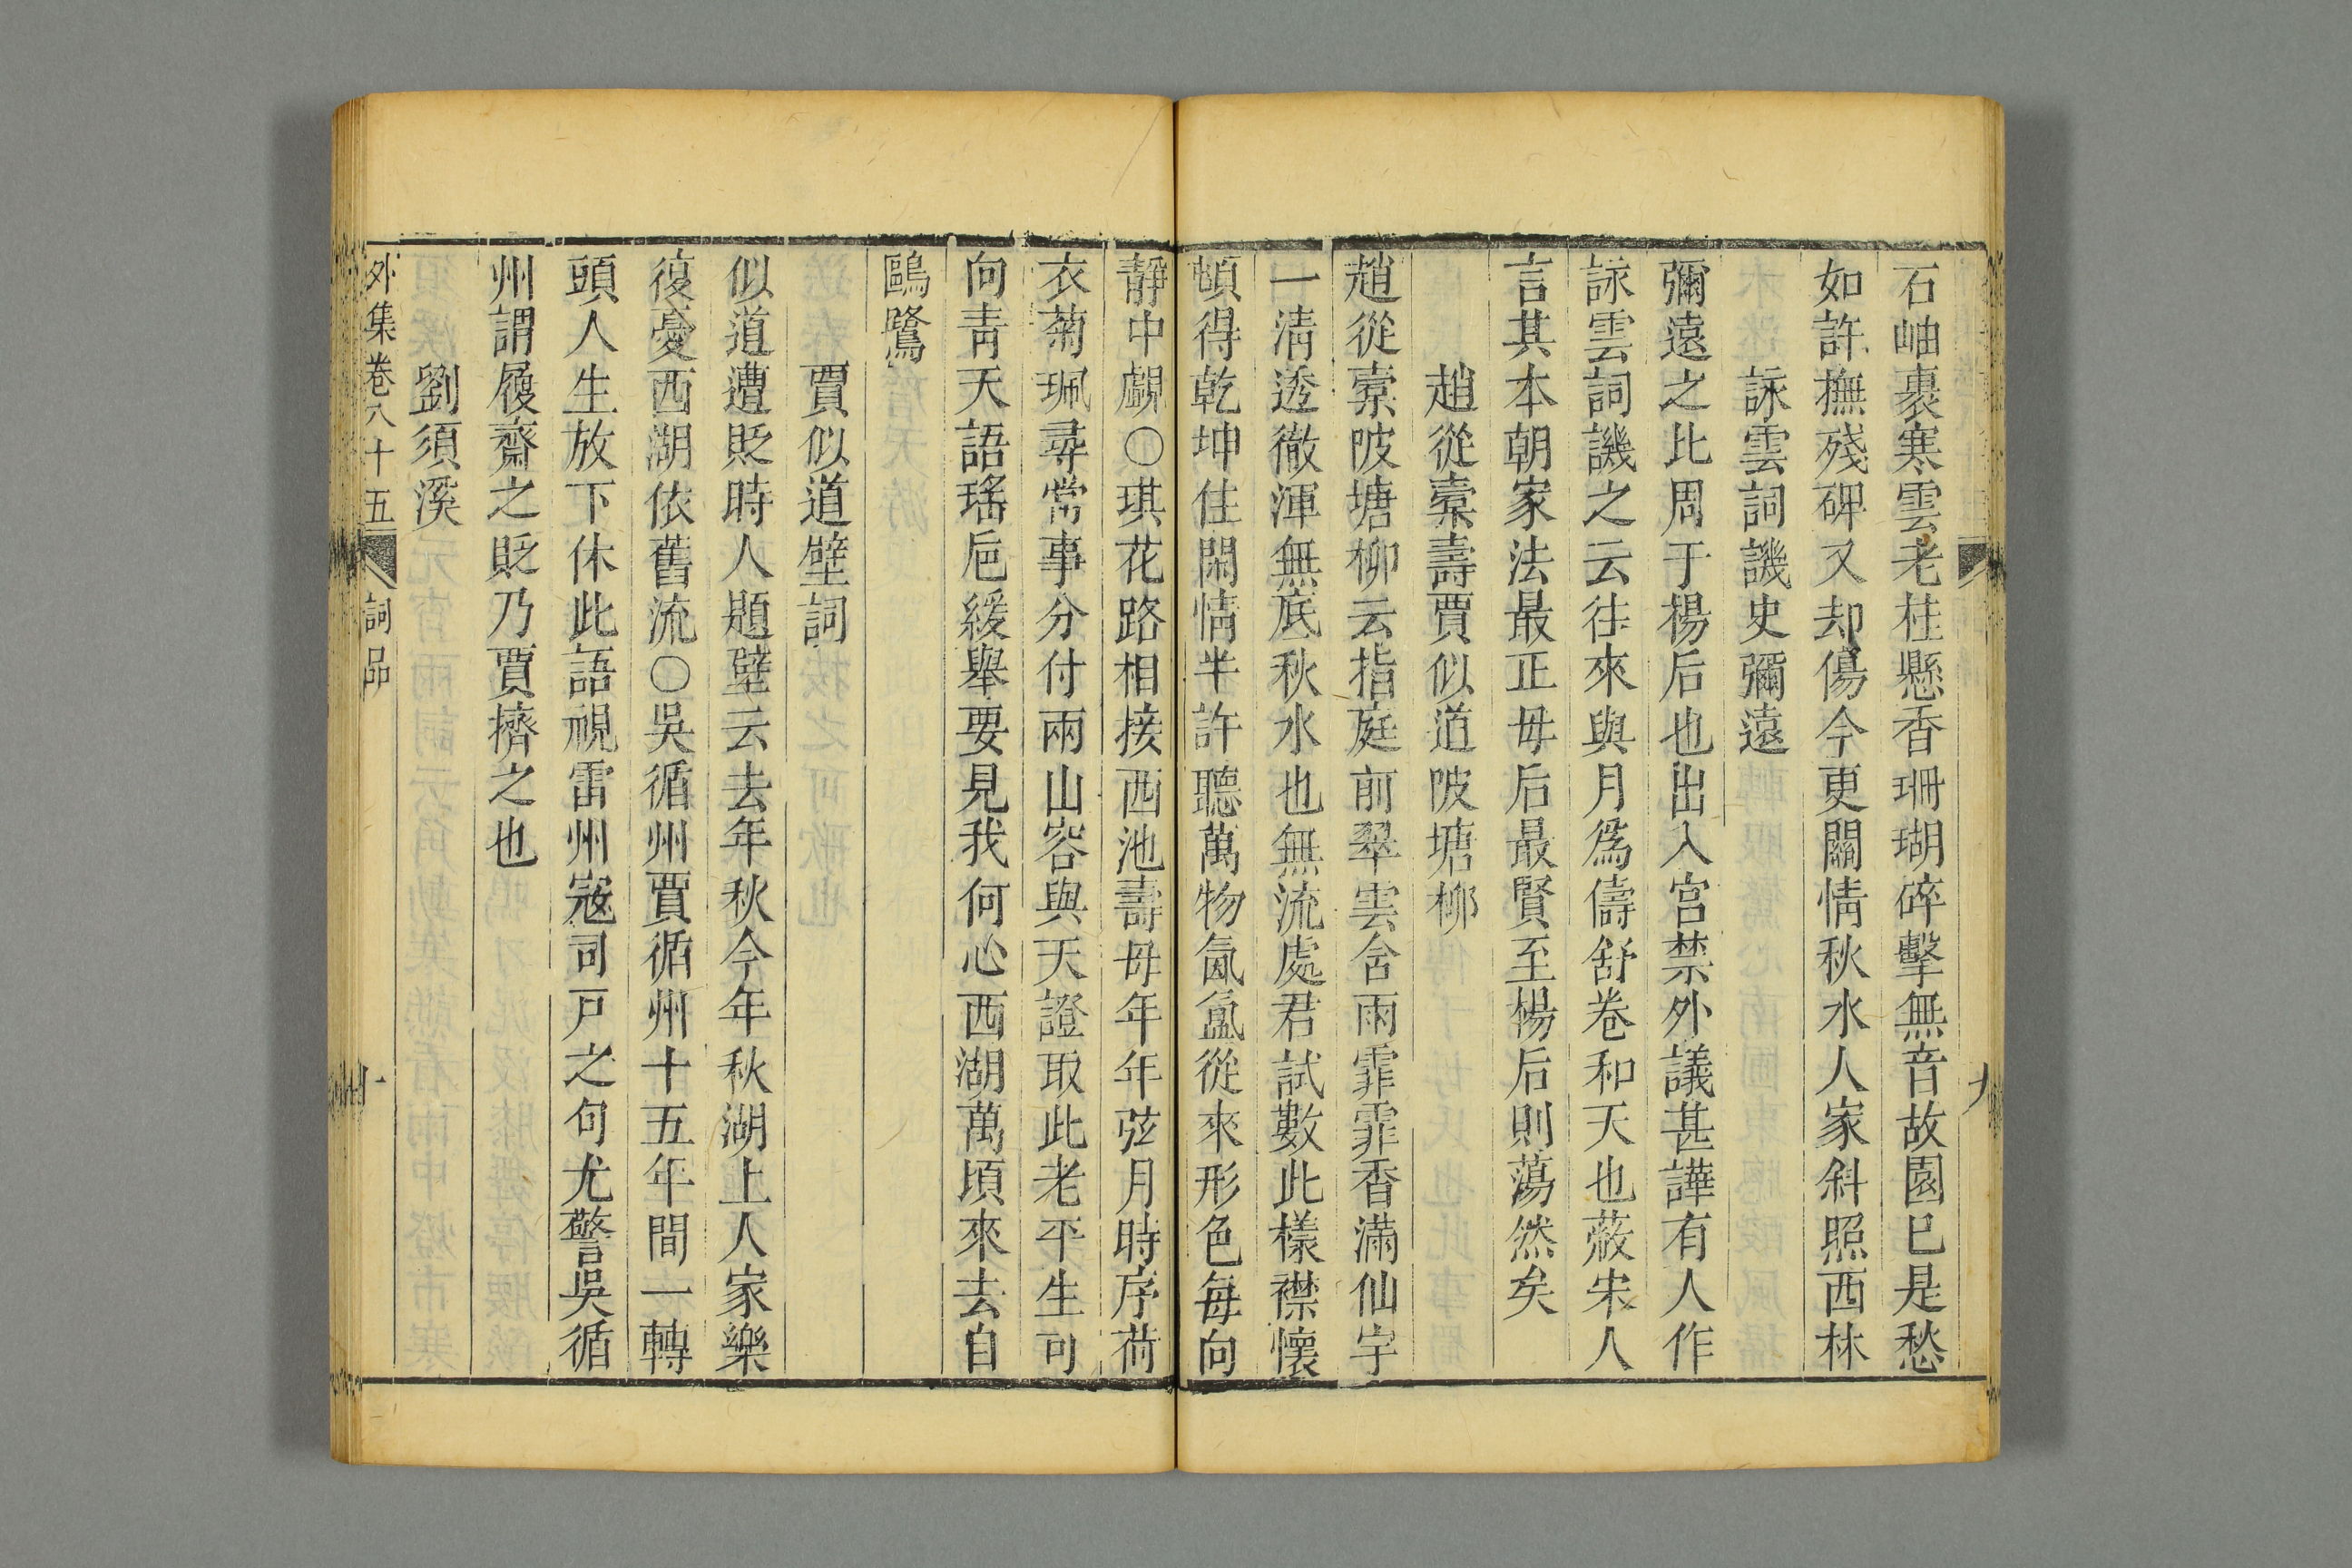 石岫裹寒雲老柱懸香珊瑚碎擊無音故園已是愁
如許撫殘碑又却傷今更關情秋水人家斜照西林
詠雲詞譏史彌遠
彌遠之比周于楊后也出入宫禁外議甚譁有人作
詠雲詞譏之云往來與月爲儔舒卷和天也蔽宋人
言其本朝家法最正母后最賢至楊后則蕩然矣
趙從橐壽賈似道陂塘柳
趙從橐陂塘柳云指庭前翠雲含雨霏霏香滿仙宇
一清透徹渾無底秋水也無流處君試數此樣襟懷
頓得乾坤住閑情半許聽萬物氤氳從來形色每向
靜中覷○琪花路相接西池壽母年年弦月時序荷
衣菊珮尋常事分付兩山容與天證取此老平生可
向青天語瑤巵緩舉要見我何心西湖萬頃來去自
鷗鷺
賈似道壁詞
似道遭貶時人題壁云去年秋今年秋湖上人家樂
復憂西湖依舊流○吳循州賈循州十五年間一轉
頭人生放下休此語視雷州寇司戸之句尤警吳循
州謂履齋之貶乃賈擠之也
劉須溪
外集卷八十五
詞品
九